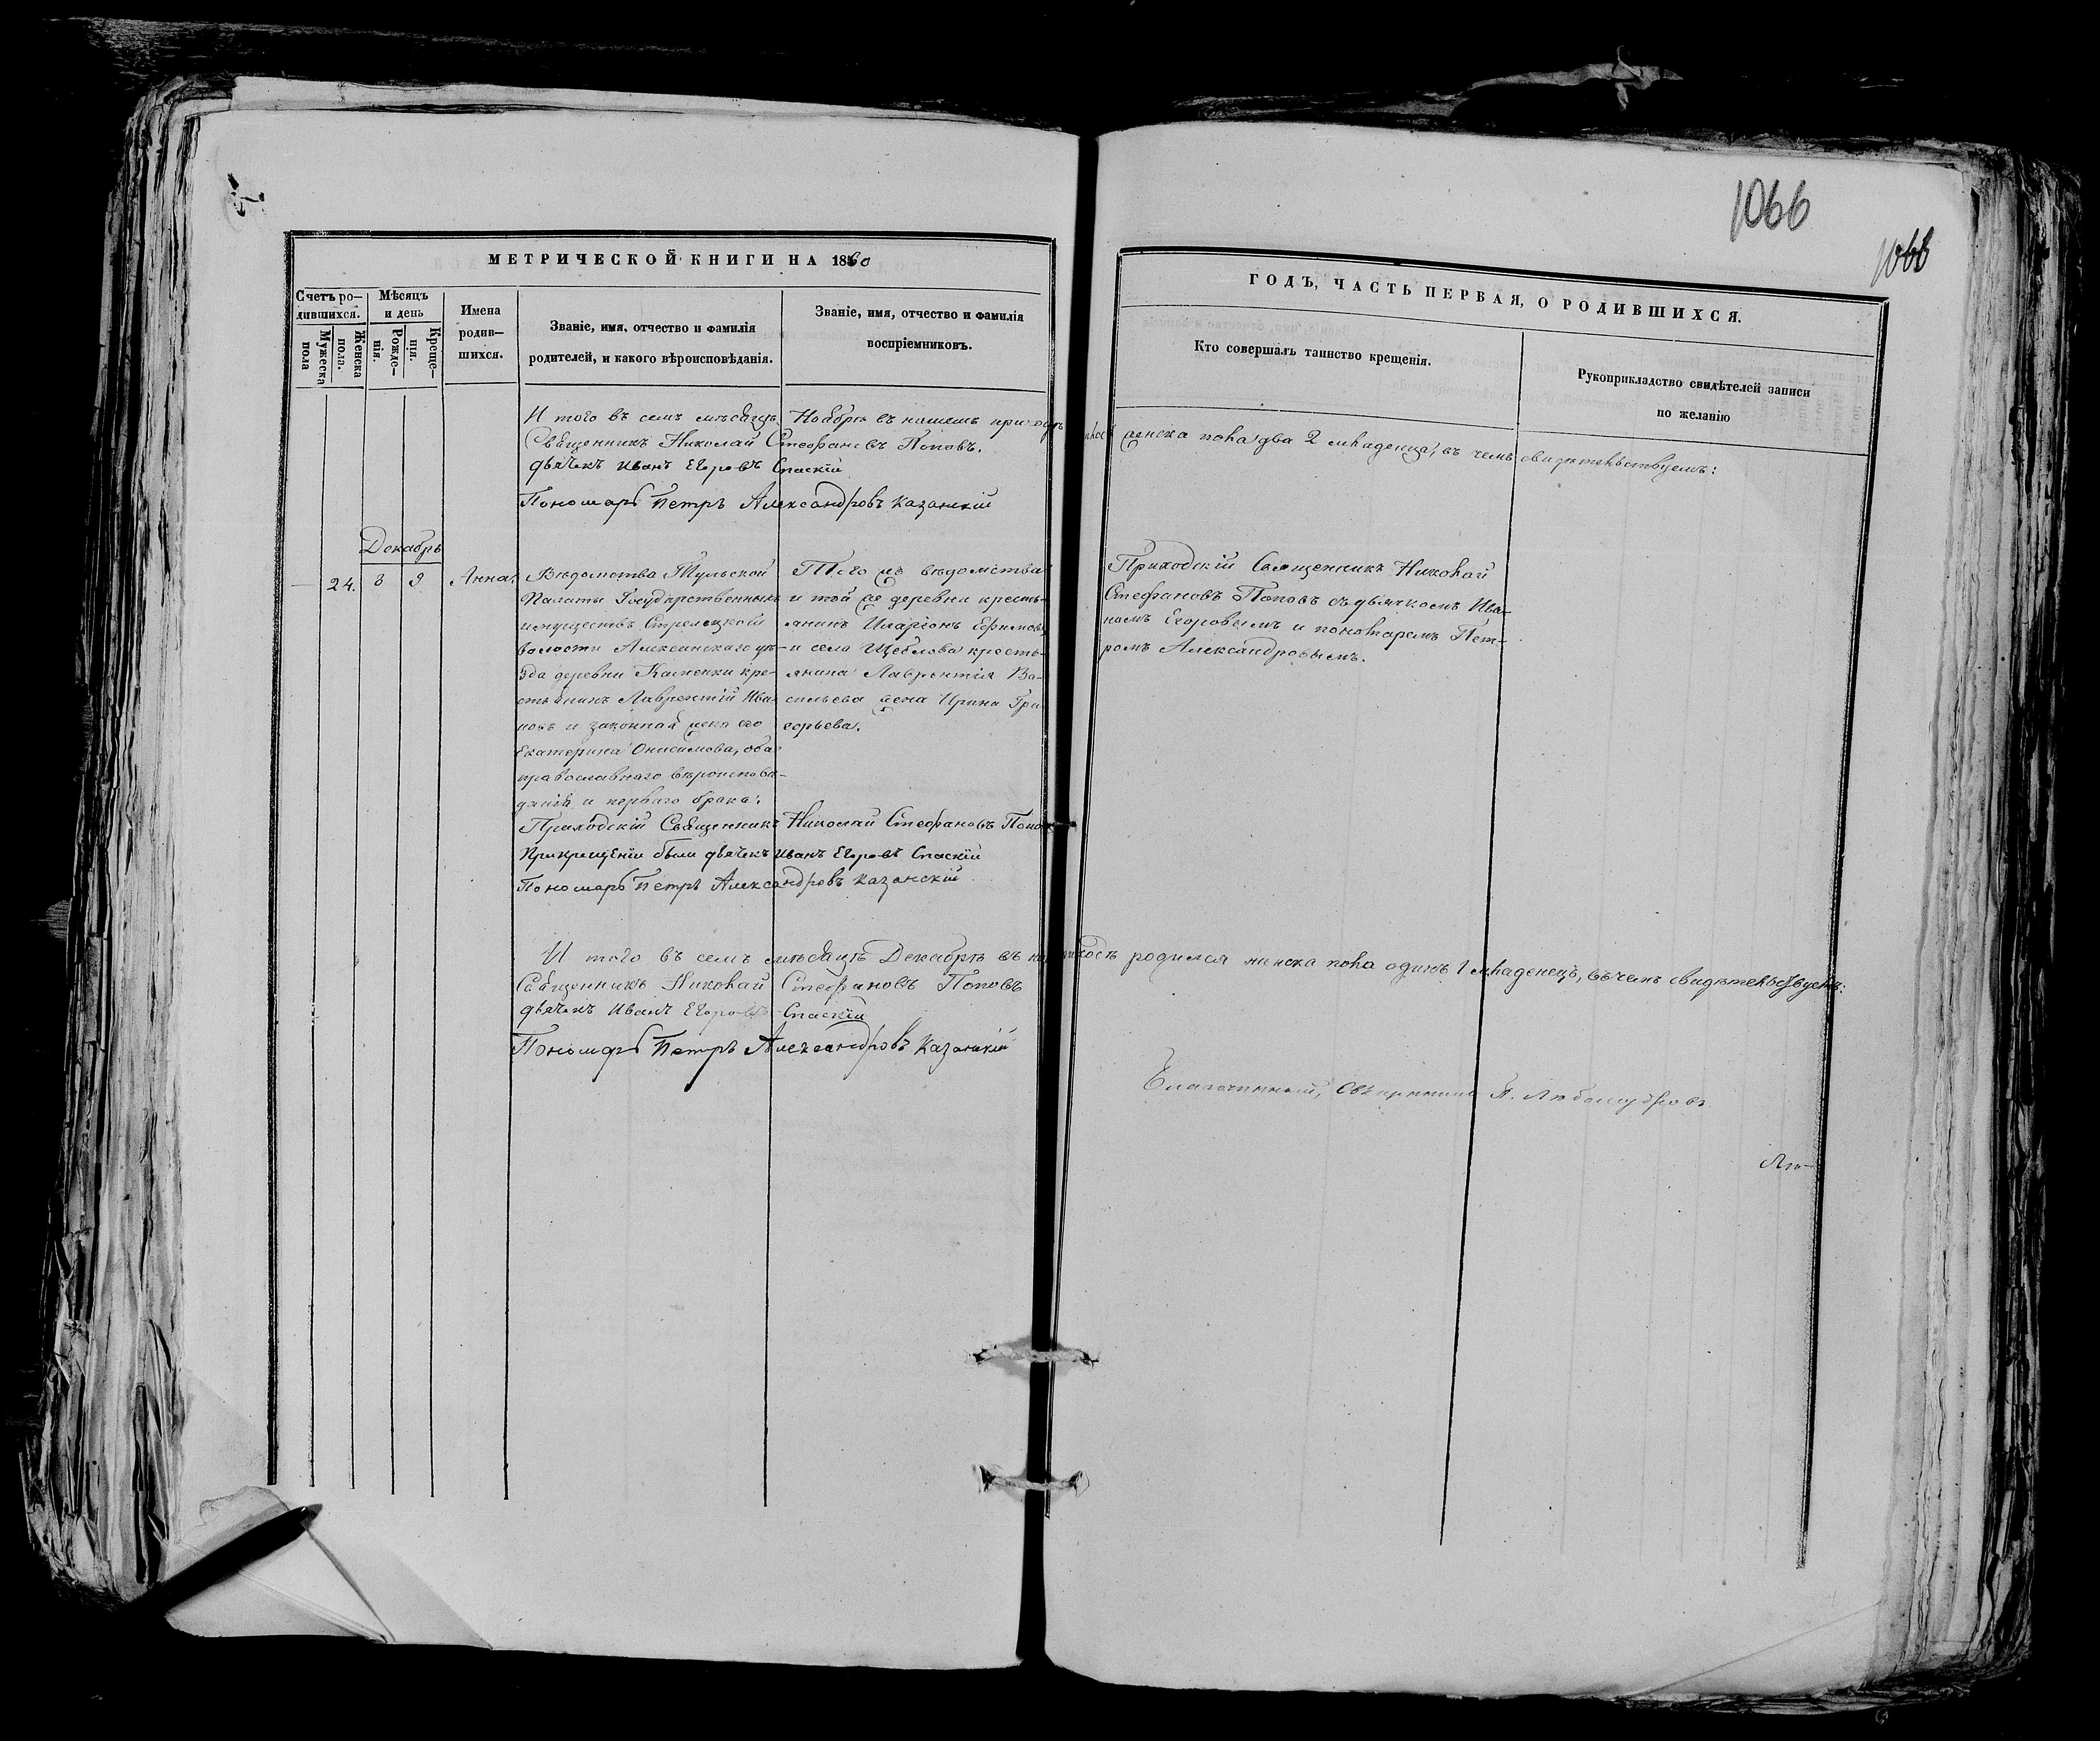 1066
1066
МЕТРИЧЕСКОЙ КНИГИ НА 1860
ГОДЪ, ЧАСТЬ ПЕРВАЯ, О РОДИВШИХСЯ.
Счетъ ро-
дившихся.
Мужеска
пола
Женска
пола.
Мѣсяцъ
и день
Рожде-
нія.
Креще-
нія.
Имена
родив-
шихся.
Званіе, имя, отчество и фамилія
родителей, и какого вѣроисповѣданія.
Званіе, имя, отчество и фамилія
воспріемниковъ.
Кто совершалъ таинство крещенія.
Рукоприкладство свидѣтелей записи
по желанію
И того въ семъ мѣсяцѣ Ноябрѣ въ нашемъ приходѣ женска пола два 2 младенца, въ чемъ свидѣтельствуемъ:
Священникъ Николай Стефановъ Поповъ.
дьячекъ Иванъ Егоровъ Спаскій
Пономарь Петръ Александровъ Казанскій
Декабрь
24. 8 9 Анна.
Вѣдомства Тульской
Палаты Государственныхъ
имуществъ Стрелецкой
волости Алексинскаго уѣ-
зда деревни Каменки кре-
стьянинъ Лаврентій Ива-
новъ и законная жена его
Екатерина Онисимова, оба
православнаго вѣроисповѣ-
данія и перваго брака.
Того же вѣдомства
и той же деревни кресть-
янинъ Иларіонъ Ефимовъ
и села Щеблова кресть-
янина Лаврентія Ва-
сильева жена Ирина Гри-
горьева.
Приходскій Священникъ Николай
Стефановъ Поповъ съ дьячкомъ Ива-
номъ Егоровымъ и пономаремъ Пет-
ромъ Александровымъ.
Приходскій Священникъ Николай Стефановъ Поповъ
При крещеніи были дьячекъ Иванъ Егоровъ Спаскій
Пономарь Петръ Александровъ Казанскій
И того въ семъ мѣсяцѣ Декабрѣ въ родился женска пола одинъ 1 младенецъ, въ чемъ свидѣтельствуемъ:
Священникъ Николай Стефановъ Поповъ
дьячекъ Иванъ Егоровъ Спаскій
Пономарь Петръ Александровъ Казанскій
Благочинный, Священникъ П. Любомудровъ